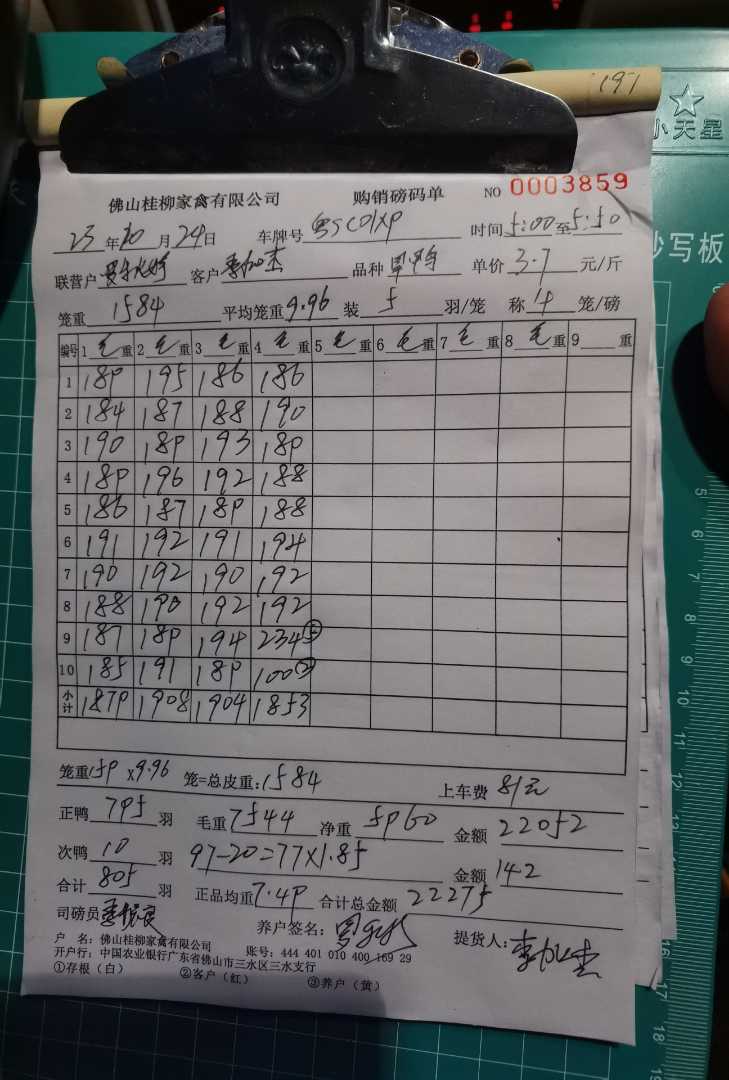 197
小天星
抄写板
佛山桂柳家禽有限公司 购销磅码单 NO 0003859
23年10月24日 车牌号 粤SC01XP 时间 5:00至5:50
联营户 客户 品种 单价 3.7 元/斤
笼重 1584 平均笼重 9.96 装 5 羽/笼 称 4 笼/磅
编号 1毛重 2毛重 3毛重 4毛重 5毛重 6毛重 7毛重 8毛重 9 重
1 189 195 186 186
2 184 187 188 190
3 190 189 193 189
4 189 196 192 188
5 186 187 189 188
6 191 192 191 194
7 190 192 190 192
8 188 190 192 192
9 187 189 194 234⑤
10 185 191 189 100②
小计 1879 1908 1904 1853
笼重 159 x9.96 笼=总皮重:1584 上车费 81元
正鸭 795 羽 毛重 7544 净重 5960 金额 22052
次鸭 10 羽 97-20=77X1.85 金额 142
合计 805 羽 正品均重 7.49 合计总金额 22275
司磅员 养户签名: 提货人:
户 名:佛山桂柳家禽有限公司 账号:444 401 010 400 169 29
开户行:中国农业银行广东省佛山市三水区三水支行
①存根(白) ②客户(红) ③养户(黄)
5
6
7
8
9
10
11
12
13
14
16
17
18
19